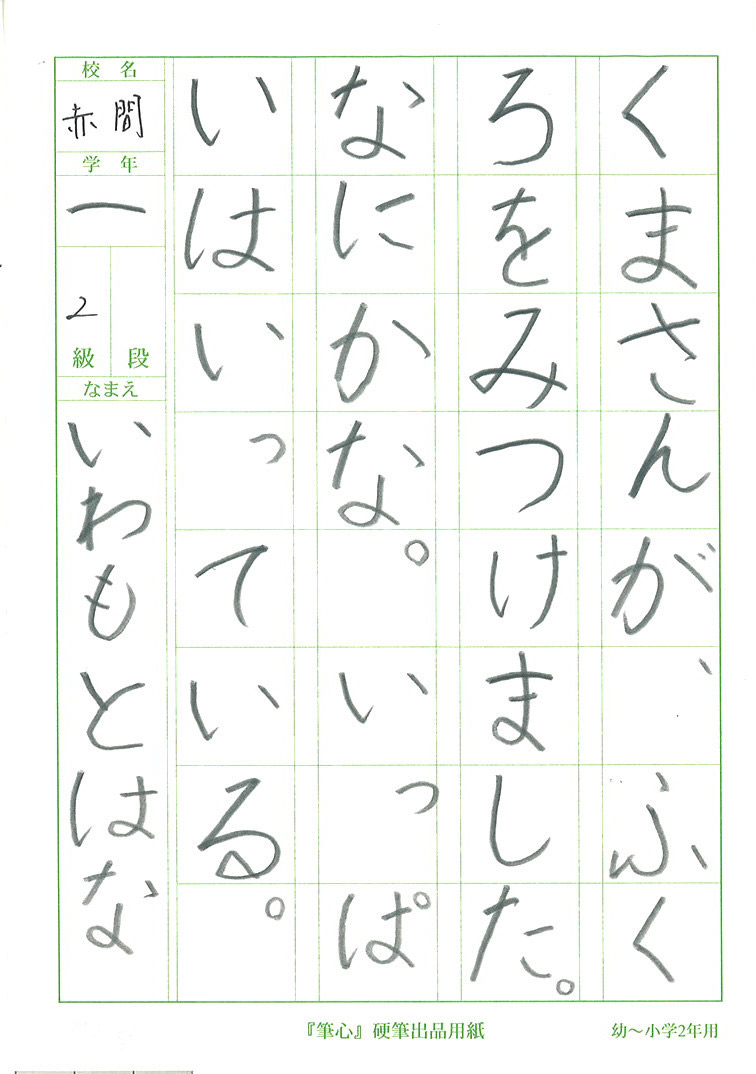 くまさんが、ふく
ろをみつけました。
なにかな。いっぱ
いはいっている。
校名
赤間
学年
一
2
級
段
なまえ
いわもとはな
『筆心』硬筆出品用紙
幼～小学2年用